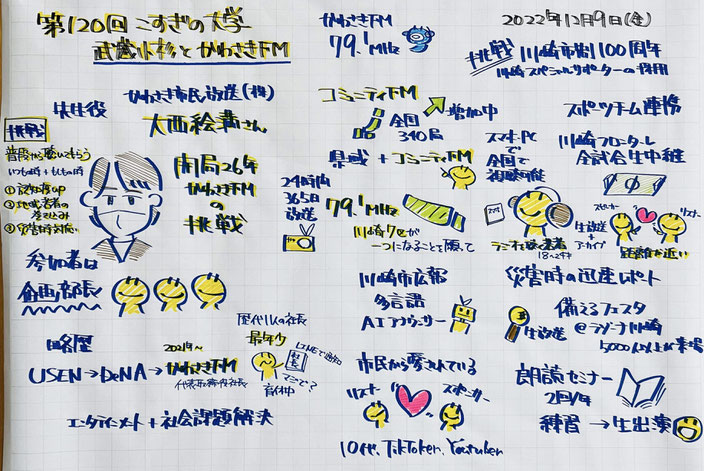 第120回 こすぎの大学
武蔵小杉とかわさきFM
先生役
かわさき市民放送(株)
大西絵満さん
挑戦
普段から聴いてもらう
いつもの時+もしもの時
①認知度UP
②地域若者の巻き込み
③災害時対応
開局26年
かわさきFM
の
挑戦
参加者は
企画部長
略歴
USEN→DeNA→かわさきFM
2021年〜
代表取締役社長
歴代11人の社長
最年少
育休中
LINEで通知
社長
マジで?
エンタテインメント+社会課題解決
かわさきFM
79.1MHz
コミュニティFM
全国
340局
増加中
県域+コミュニティFM
24時間
365日
放送
79.1MHz
川崎7区が
一つになることを願って
川崎市広報
多言語
AIアナウンサー
市民から愛されている
リスナー
スポンサー
10代、TikToker、Youtuber
2022年12月9日(金)
挑戦
川崎市制100周年
川崎スペシャルサポーターの採用
スマホ・PC
で
全国で
視聴可能
ラジオを聴く若者
18〜24才
スポーツチーム連携
川崎フロンターレ
全試合生中継
生放送
+
アーカイブ
スポンサー
リスナー
距離が近い
災害時の迅速レポート
備えるフェスタ
@ラゾーナ川崎
生放送
5000人以上が来場
朗読セミナー
2回/年
練習→生出演